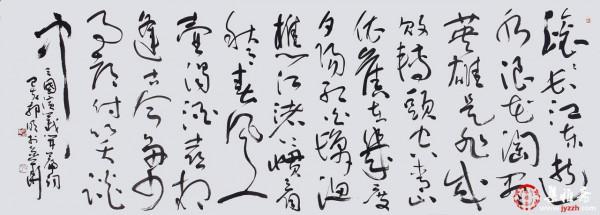 滚滚长江东逝
水浪花淘尽
英雄是非成
败转头空青山
依旧在几度
夕阳红白发渔
樵江渚上惯看
秋月春风一
壶浊酒喜相
逢古今多少
事都付笑谈
中
三国演义开篇词
www.jyzzh.com